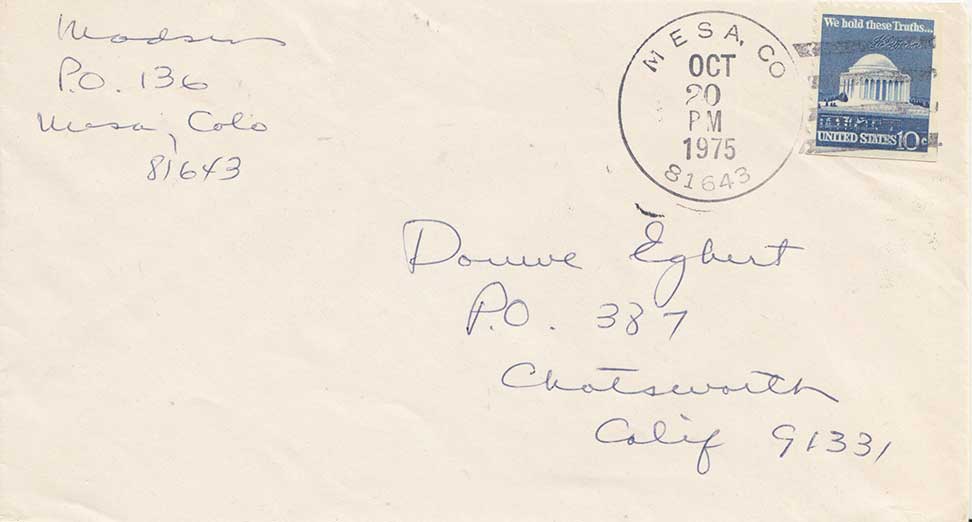 Madsen
P.O. 136
Mesa, Colo
81643
MESA, CO
OCT
20
PM
1975
81643
We hold these Truths...
UNITED STATES 10c
Douwe Egbert
P.O. 387
Chatsworth
Calif 91331